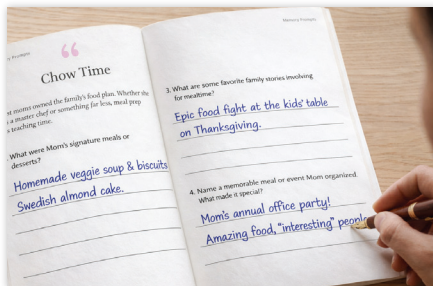 Memory Prompts
Chow Time
moms owned the family's food plan. Whether she
a master chef or something far less, meal prep
teaching time.
What were Mom's signature meals or
desserts?
Homemade veggie soup & biscuits
Swedish almond cake.
Memory Prompts
3. What are some favorite family stories involving
for mealtime?
Epic food fight at the kids' table
on Thanksgiving.
4. Name a memorable meal or event Mom organized.
What made it special?
Mom's annual office party!
Amazing food, "interesting" people